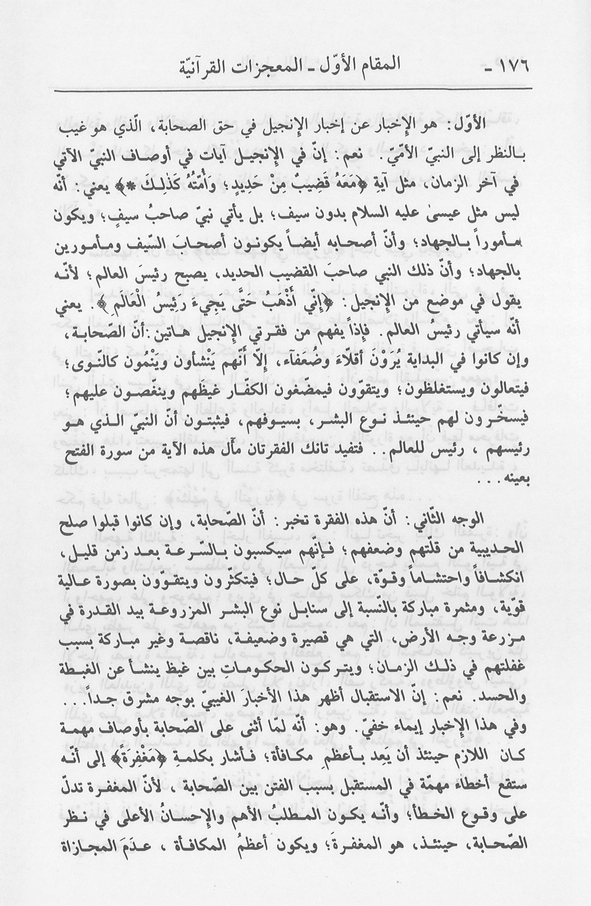 ١٧٦ - المقام الأوّل - المعجزات القرآنيّة
الأوّل: هو الإخبار عن إخبار الإنجيل في حق الصحابة، الّذي هو غيب
بالنظر إلى النبيّ الأمّيّ. نعم: إنّ في الإنجيل آيات في أوصاف النبيّ الآتي
في آخر الزمان، مثل آيةِ ﴿مَعَهُ قَضِيبٌ مِنْ حَدِيدٍ؛ وأُمَّتُهُ كَذَلِكَ *﴾ يعني: أنّه
ليس مثل عيسىٰ عليه السلام بدون سيف؛ بل يأتي نبيّ صاحبُ سيفٍ؛ ويكون
مأموراً بالجهاد؛ وأنّ أصحابه أيضاً يكونون أصحابَ السّيف ومأمورين
بالجهاد؛ وأنّ ذلك النبي صاحبَ القضيب الحديد، يصبح رئيسَ العالم؛ لأنّه
يقول في موضع من الإنجيل: ﴿إِنّي أَذْهَبُ حَتَّى يَجِيءَ رَئِيسُ الْعَالَمِ﴾. يعني
أنّه سيأتي رئيسُ العالم. فإذاً يفهم من فقرتي الإنجيل هاتين: أنّ الصّحابة،
وإن كانوا في البداية يُرَوْنَ أقلاءَ وضُعَفَآء، إلّا أنّهم يَنْشأون ويَنْمُون كالنّوى؛
فيتعالون ويستغلظون؛ ويتقوّون فيمضّغون الكفّار غيظَهم وينغّصون عليهم؛
فيسخّرون لهم حينئذ نوع البشر، بسيوفهم، فيثبتون أنّ النبيّ الذي هو
رئيسهم، رئيس للعالم.. فتفيد تانك الفقرتان مآل هذه الآية من سورة الفتح
بعينه...
الوجه الثّاني: أنّ هذه الفقرة تخبر: أنّ الصّحابة، وإن كانوا قبلوا صلح
الحديبية من قلّتهم وضعفهم؛ فإنّهم سيكسبون بالسّرعة بعد زمن قليل،
انكشافاً واحتشاماً وقوّة، على كلّ حال؛ فيتكثّرون ويتقوون بصورة عالية
قويّة، ومثمرة مباركة بالنسبة إلى سنابل نوع البشر المزروعة بيد القدرة في
مزرعة وجه الأرض، التي هي قصيرة وضعيفة، ناقصة وغير مباركة بسبب
غفلتهم في ذلك الزمان؛ ويتركون الحكومات بين غيظ ينشأ عن الغبطة
والحسد. نعم: إنّ الاستقبال أظهر هذا الأخبارَ الغيبيّ بوجه مشرق جداً...
وفي هذا الإخبار إيماء خفيّ. وهو: أنّه لمّا أثنى على الصّحابة بأوصاف مهمة
كان اللازم حينئذ أن يَعِد بأعظم مكافأة؛ فأشار بكلمةِ ﴿مَغْفِرَةً﴾ إلى أنّه
ستقع أخطاء مهمّة في المستقبل بسبب الفتن بين الصّحابة، لأنّ المغفرة تدلّ
على وقوع الخطأ؛ وأنّه يكون المطلبُ الأهم والإحسانُ الأعلى في نظر
الصّحابة، حينئذ، هو المغفرةَ؛ ويكون أعظمُ المكافأة، عدَمَ المجازاة